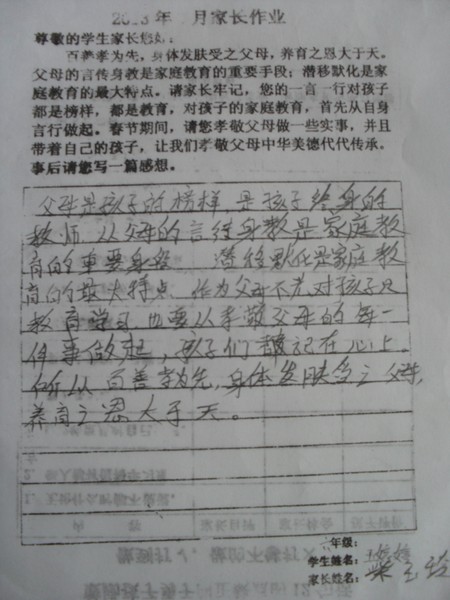 年 月家长作业
尊敬的学生家长您好：
百善孝为先，身体发肤受之父母，养育之恩大于天。
父母的言传身教是家庭教育的重要手段；潜移默化是家
庭教育的最大特点。请家长牢记，您的一言一行对孩子
都是榜样，都是教育，对孩子的家庭教育，首先从自身
言行做起。春节期间，请您孝敬父母做一些实事，并且
带着自己的孩子，让我们孝敬父母中华美德代代传承。
事后请您写一篇感想。
父母是孩子的榜样，是孩子终身的
教师 从父母的言传身教是家庭教
育的重要 潜移默化是家庭教
育的最大特点 作为父母不光对孩子
教育学习 也要从孝敬父母的每一
件事做起，孩子们 记在心上
所以 百善孝为先，身体发肤受之父母，
养育之恩大于天。
年级：
学生姓名：
家长姓名：